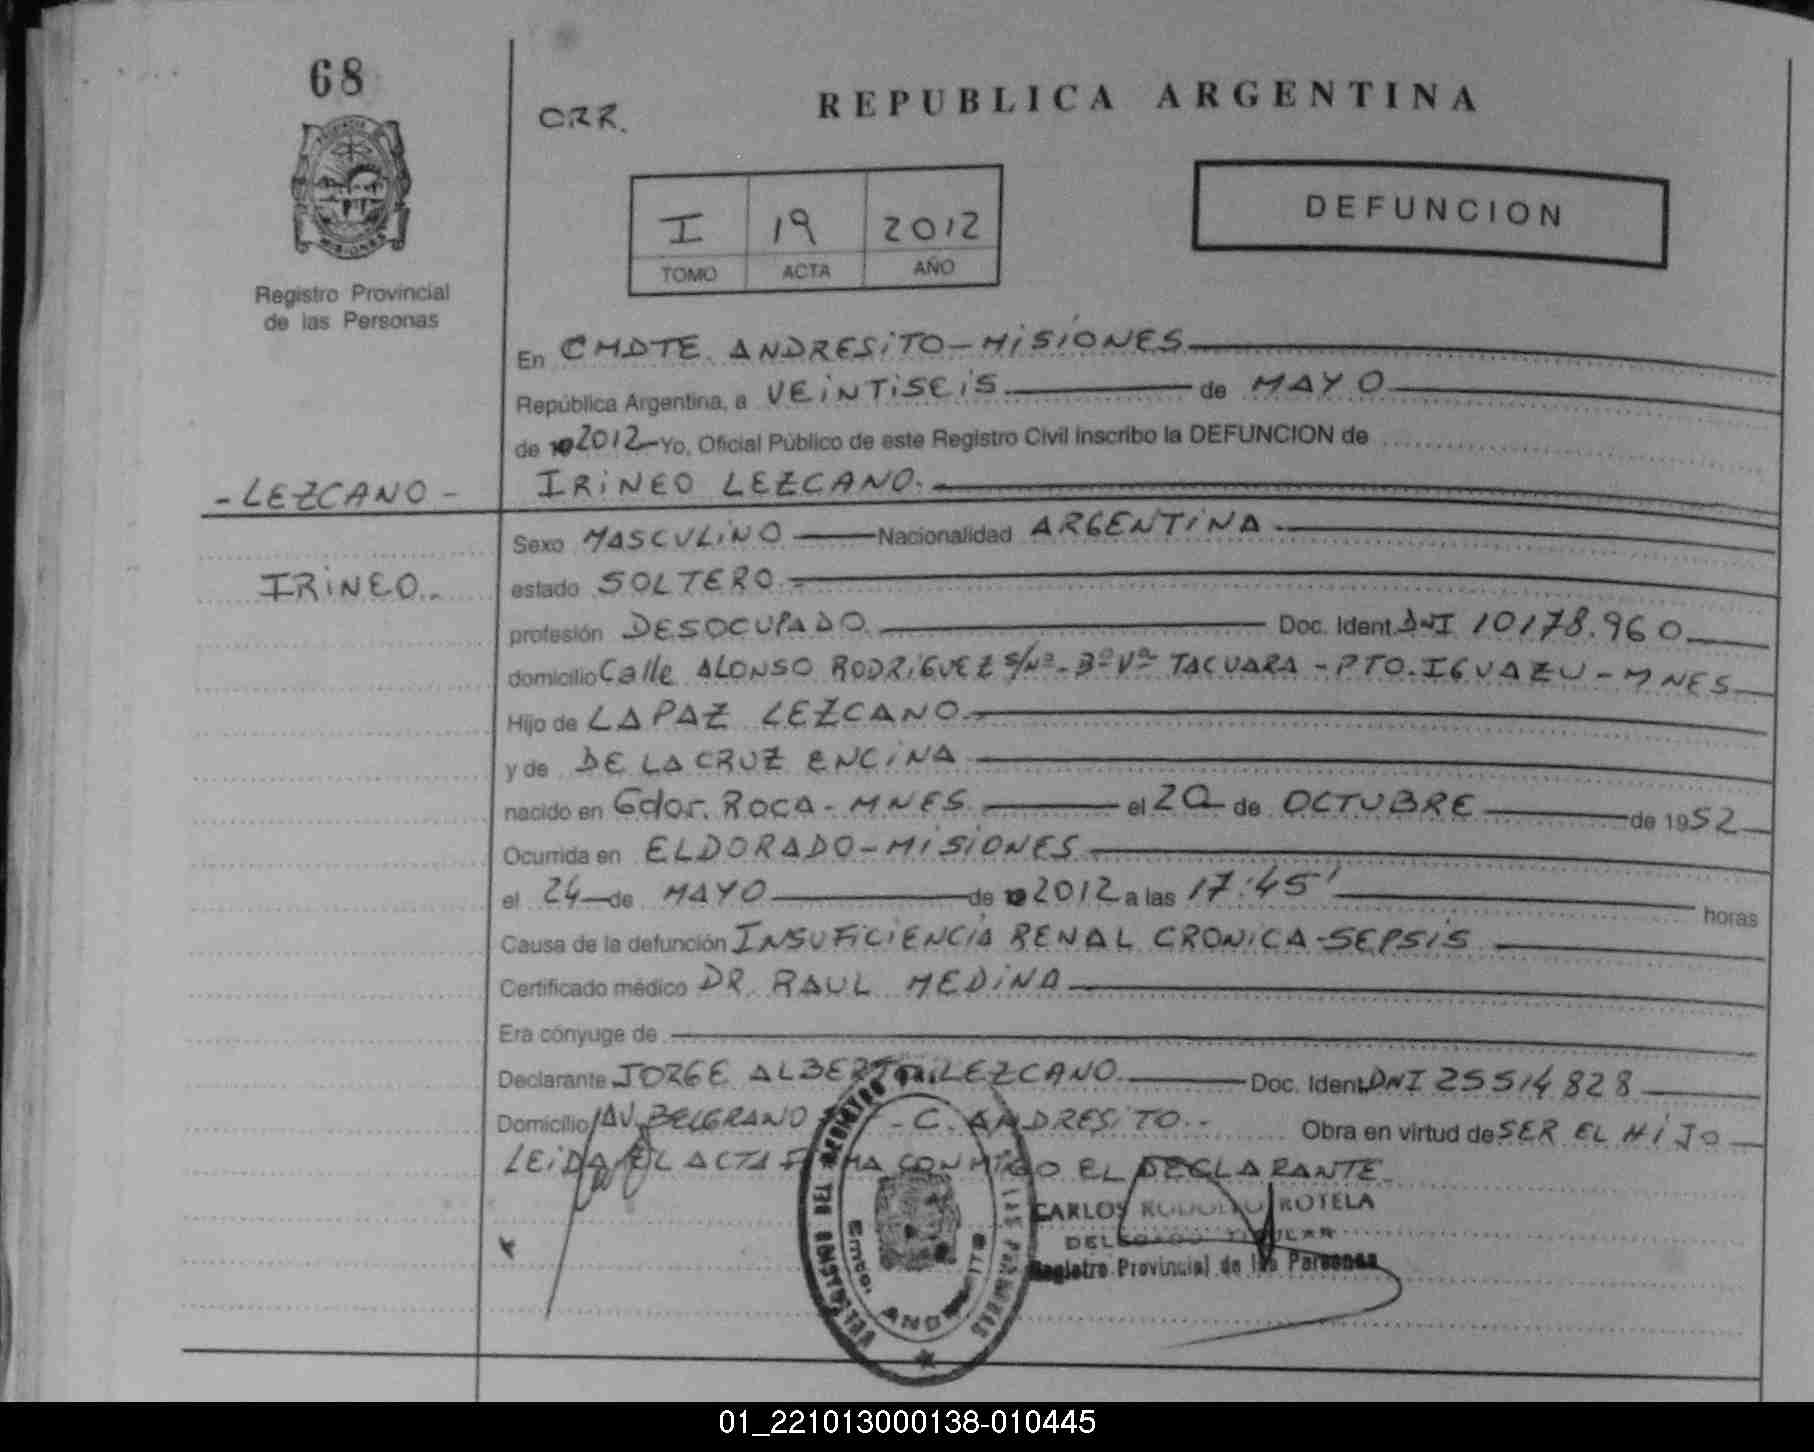 68
CRR.
REPUBLICA ARGENTINA
MISIONES
I 19 2012
TOMO ACTA AÑO
DEFUNCION
Registro Provincial
de las Personas
En CMDTE. ANDRESiTO-MiSiONES
República Argentina, a VEiNTiSEiS de MAYO
de 19 2012 Yo, Oficial Público de este Registro Civil inscribo la DEFUNCION de
-LEZCANO- IRiNEO LEZCANO.
Sexo MASCULiNO Nacionalidad ARGENTiNA
IRiNEO.. estado SOLTERO
profesión DESOCUPADO Doc. Ident. DNI 10178.960
domicilio Calle ALONSO RODRiGUEZ S/Nº-Bº Vª TACUARA-PTO.IGUAZU-MNES
Hijo de LA PAZ LEZCANO
y de DE LA CRUZ ENCiNA
nacido en Gdor. ROCA-MNES el 20 de OCTUBRE de 1952
Ocurrida en ELDORADO-MiSiONES
el 24 de MAYO de 19 2012 a las 17:45' horas
Causa de la defunción INSUFiCiENCiA RENAL CRONiCA-SEPSiS
Certificado médico DR. RAUL MEDiNA
Era cónyuge de
Declarante JORGE ALBERTO LEZCANO Doc. Ident. DNI 25514828
Domicilio AV. BELGRANO - C. ANDRESiTO.- Obra en virtud de SER EL HiJO
LEiDA EL ACTA FiRMA CONMiGO EL DECLARANTE
CARLOS RODOLFO ROTELA
DELEGADO TITULAR
Registro Provincial de las Personas
01_221013000138-010445